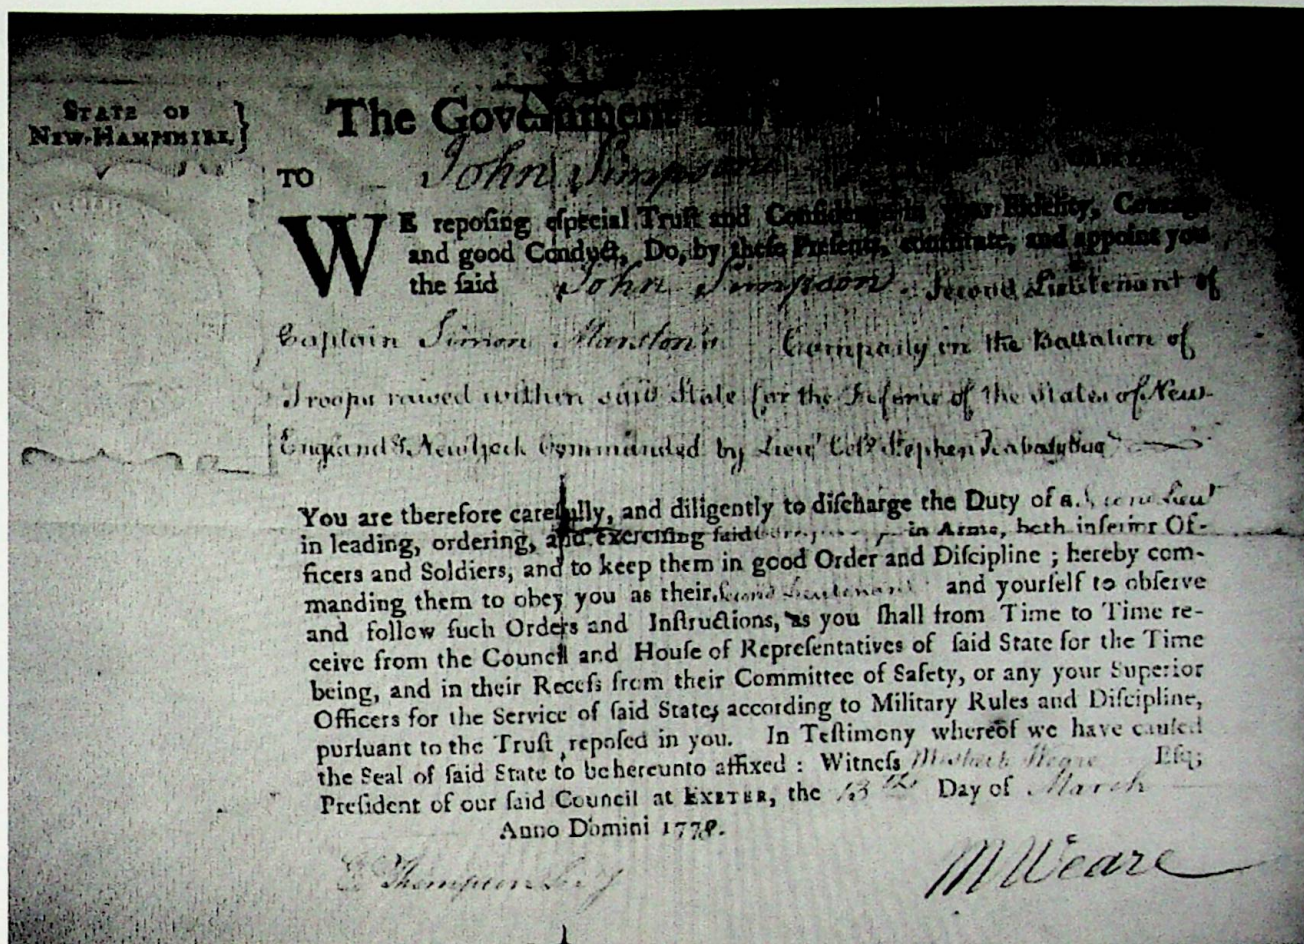 STATE OF
NEW-HAMPSHIRE. }
The Government and
TO John Simpson
WE reposing especial Trust and Confidence in your Fidelity, Courage
and good Conduct, Do, by these Presents, constitute, and appoint you
the said John Simpson. Second Lieutenant of
Captain Simon Marston's Company in the Battalion of
Troops raised within said State for the Defence of the States of New-
England & New York Commanded by Lieut Colo Stephen Peabody
You are therefore carefully, and diligently to discharge the Duty of a Second Lieut
in leading, ordering, and exercising said Company in Arms, both inferior Of-
ficers and Soldiers, and to keep them in good Order and Discipline ; hereby com-
manding them to obey you as their Second Lieutenant and yourself to observe
and follow such Orders and Instructions, as you shall from Time to Time re-
ceive from the Council and House of Representatives of said State for the Time
being, and in their Recess from their Committee of Safety, or any your Superior
Officers for the Service of said States according to Military Rules and Discipline,
pursuant to the Trust reposed in you. In Testimony whereof we have caused
the Seal of said State to be hereunto affixed : Witness Meshech Weare Esq;
President of our said Council at EXETER, the 13th Day of March
Anno Domini 1778.
E Thompson Secy
M Weare